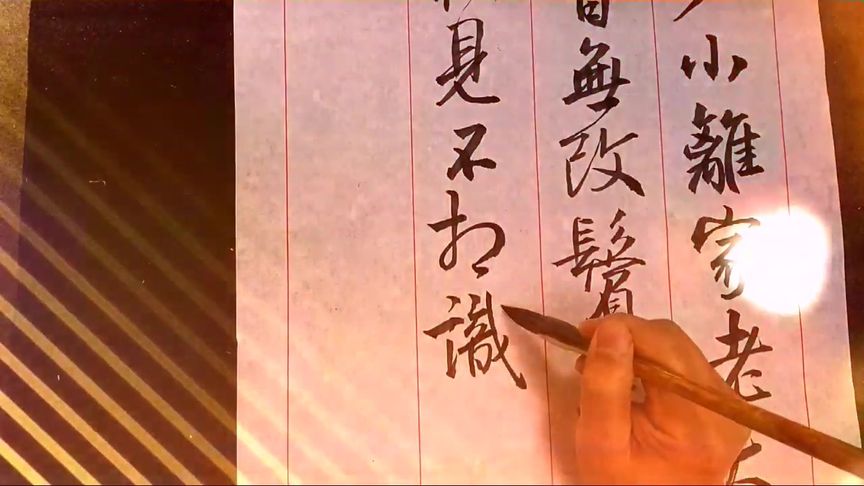 小離家老
無改鬢
見不相識